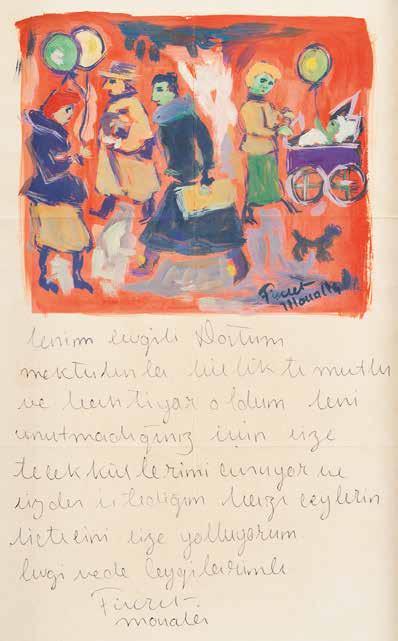 Fikret
Moualla
benim sevgili Dostum
mektubunla birlikte mutlu
ve bahtiyar oldum beni
unutmadığınız için size
teşekkürlerimi sunuyor ve
sizden istediğim bazı şeylerin
listesini size yolluyorum
Sevgi vede Saygılarımla
Fikret
moualla